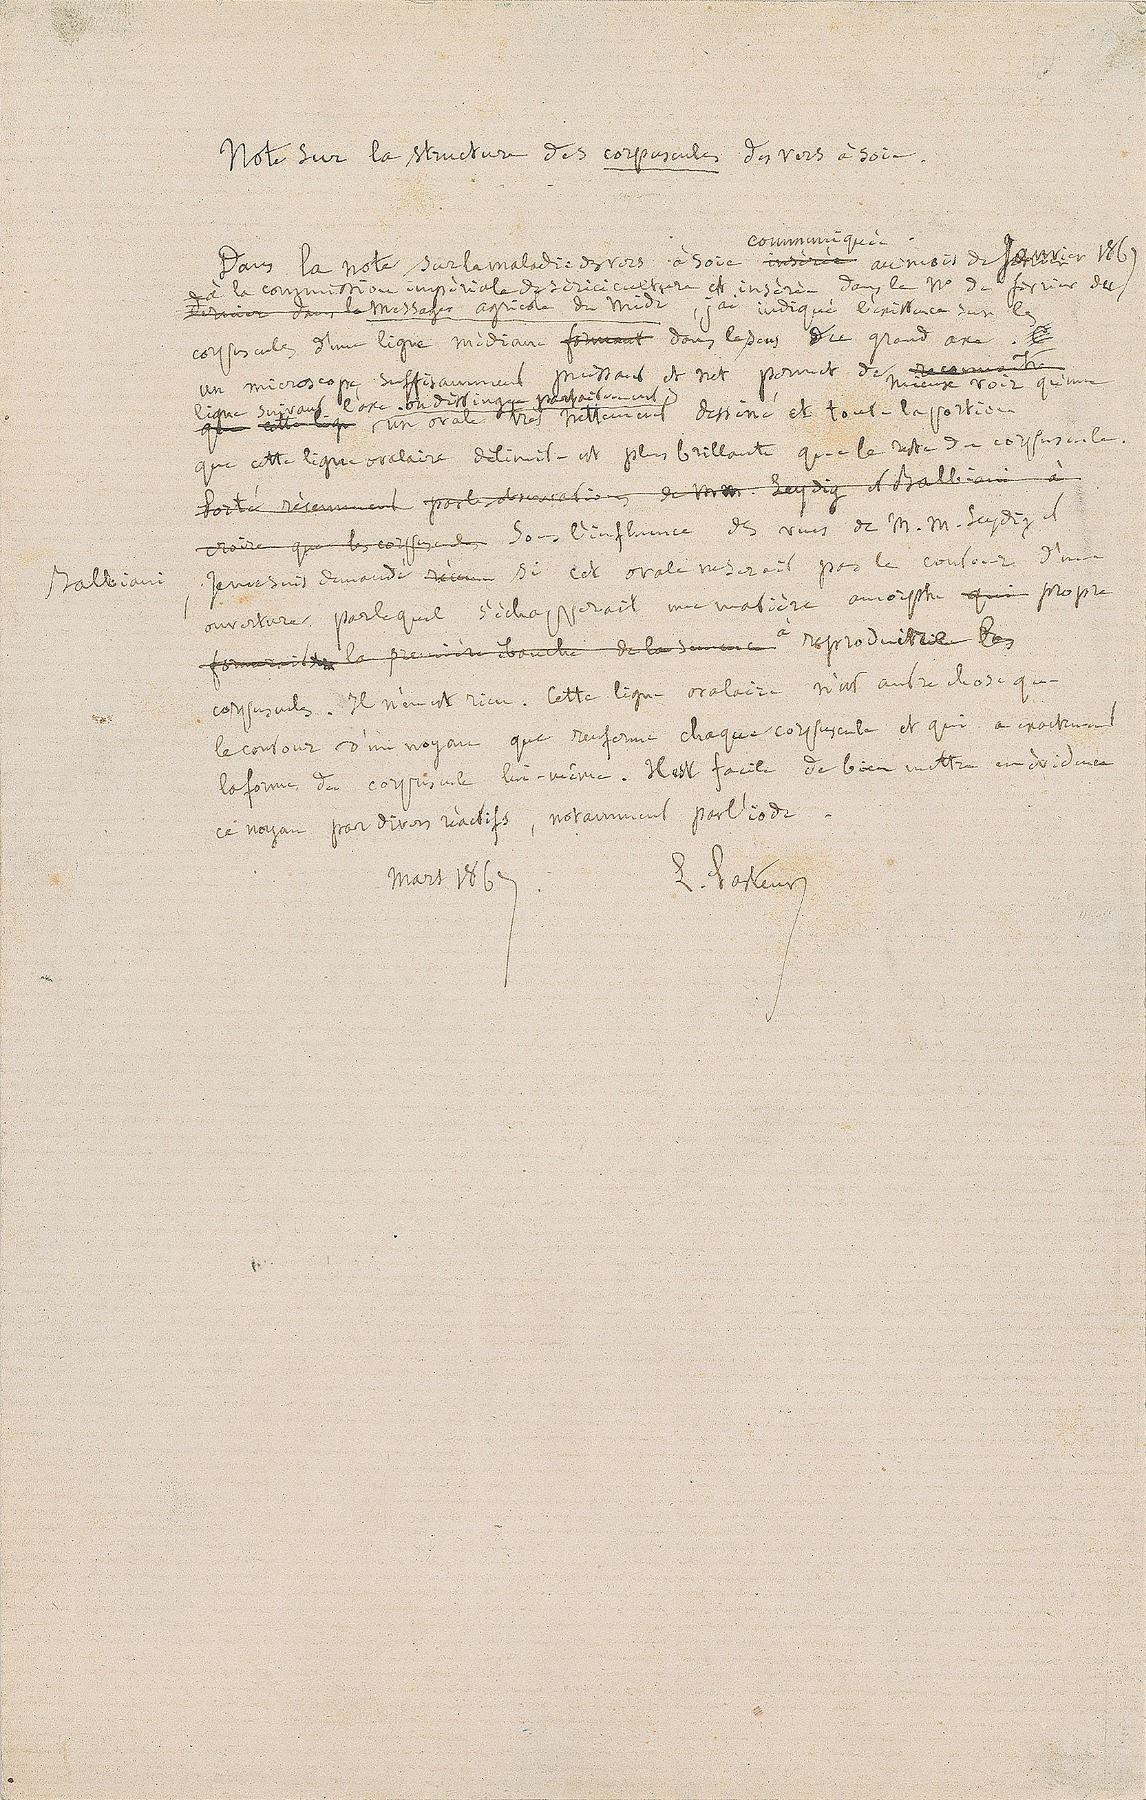 Note sur la structure des corpuscules des vers à soie.
communiquée
Dans la note sur la maladie des vers à soie insérée au mois de Janvier 1867
à la commission impériale de sériciculture et insérée dans le No de février du
dernier dans le Messager agricole du Midi, j'ai indiqué l'existence sur les
corpuscules d'une ligne médiane formant dans le sens du grand axe.
un microscope suffisamment puissant et net permet de reconnaître
mieux voir qu'une
ligne suivant l'axe on distingue parfaitement
que cette lign un ovale très nettement dessiné et toute la portion
que cette ligne ovalaire délimite est plus brillante que le reste du corpuscule.
Porté récemment par les observations de MM. Leydig et Balbiani à
croire que les corpuscules Sous l'influence des vues de M. M. Leydig et
Balbiani, je me suis demandé si cet ovale ne serait pas le contour d'une
ouverture par lequel s'échapperait une matière amorphe qui propre
formerait la première ébauche de la semence à reproduire les
corpuscules. Il n'en est rien. Cette ligne ovalaire n'est autre chose que
le contour d'un noyau que renferme chaque corpuscule et qui a exactement
la forme du corpuscule lui-même. Il est facile de bien mettre en évidence
ce noyau par divers réactifs, notamment par l'iode.
Mars 1867. L. Pasteur